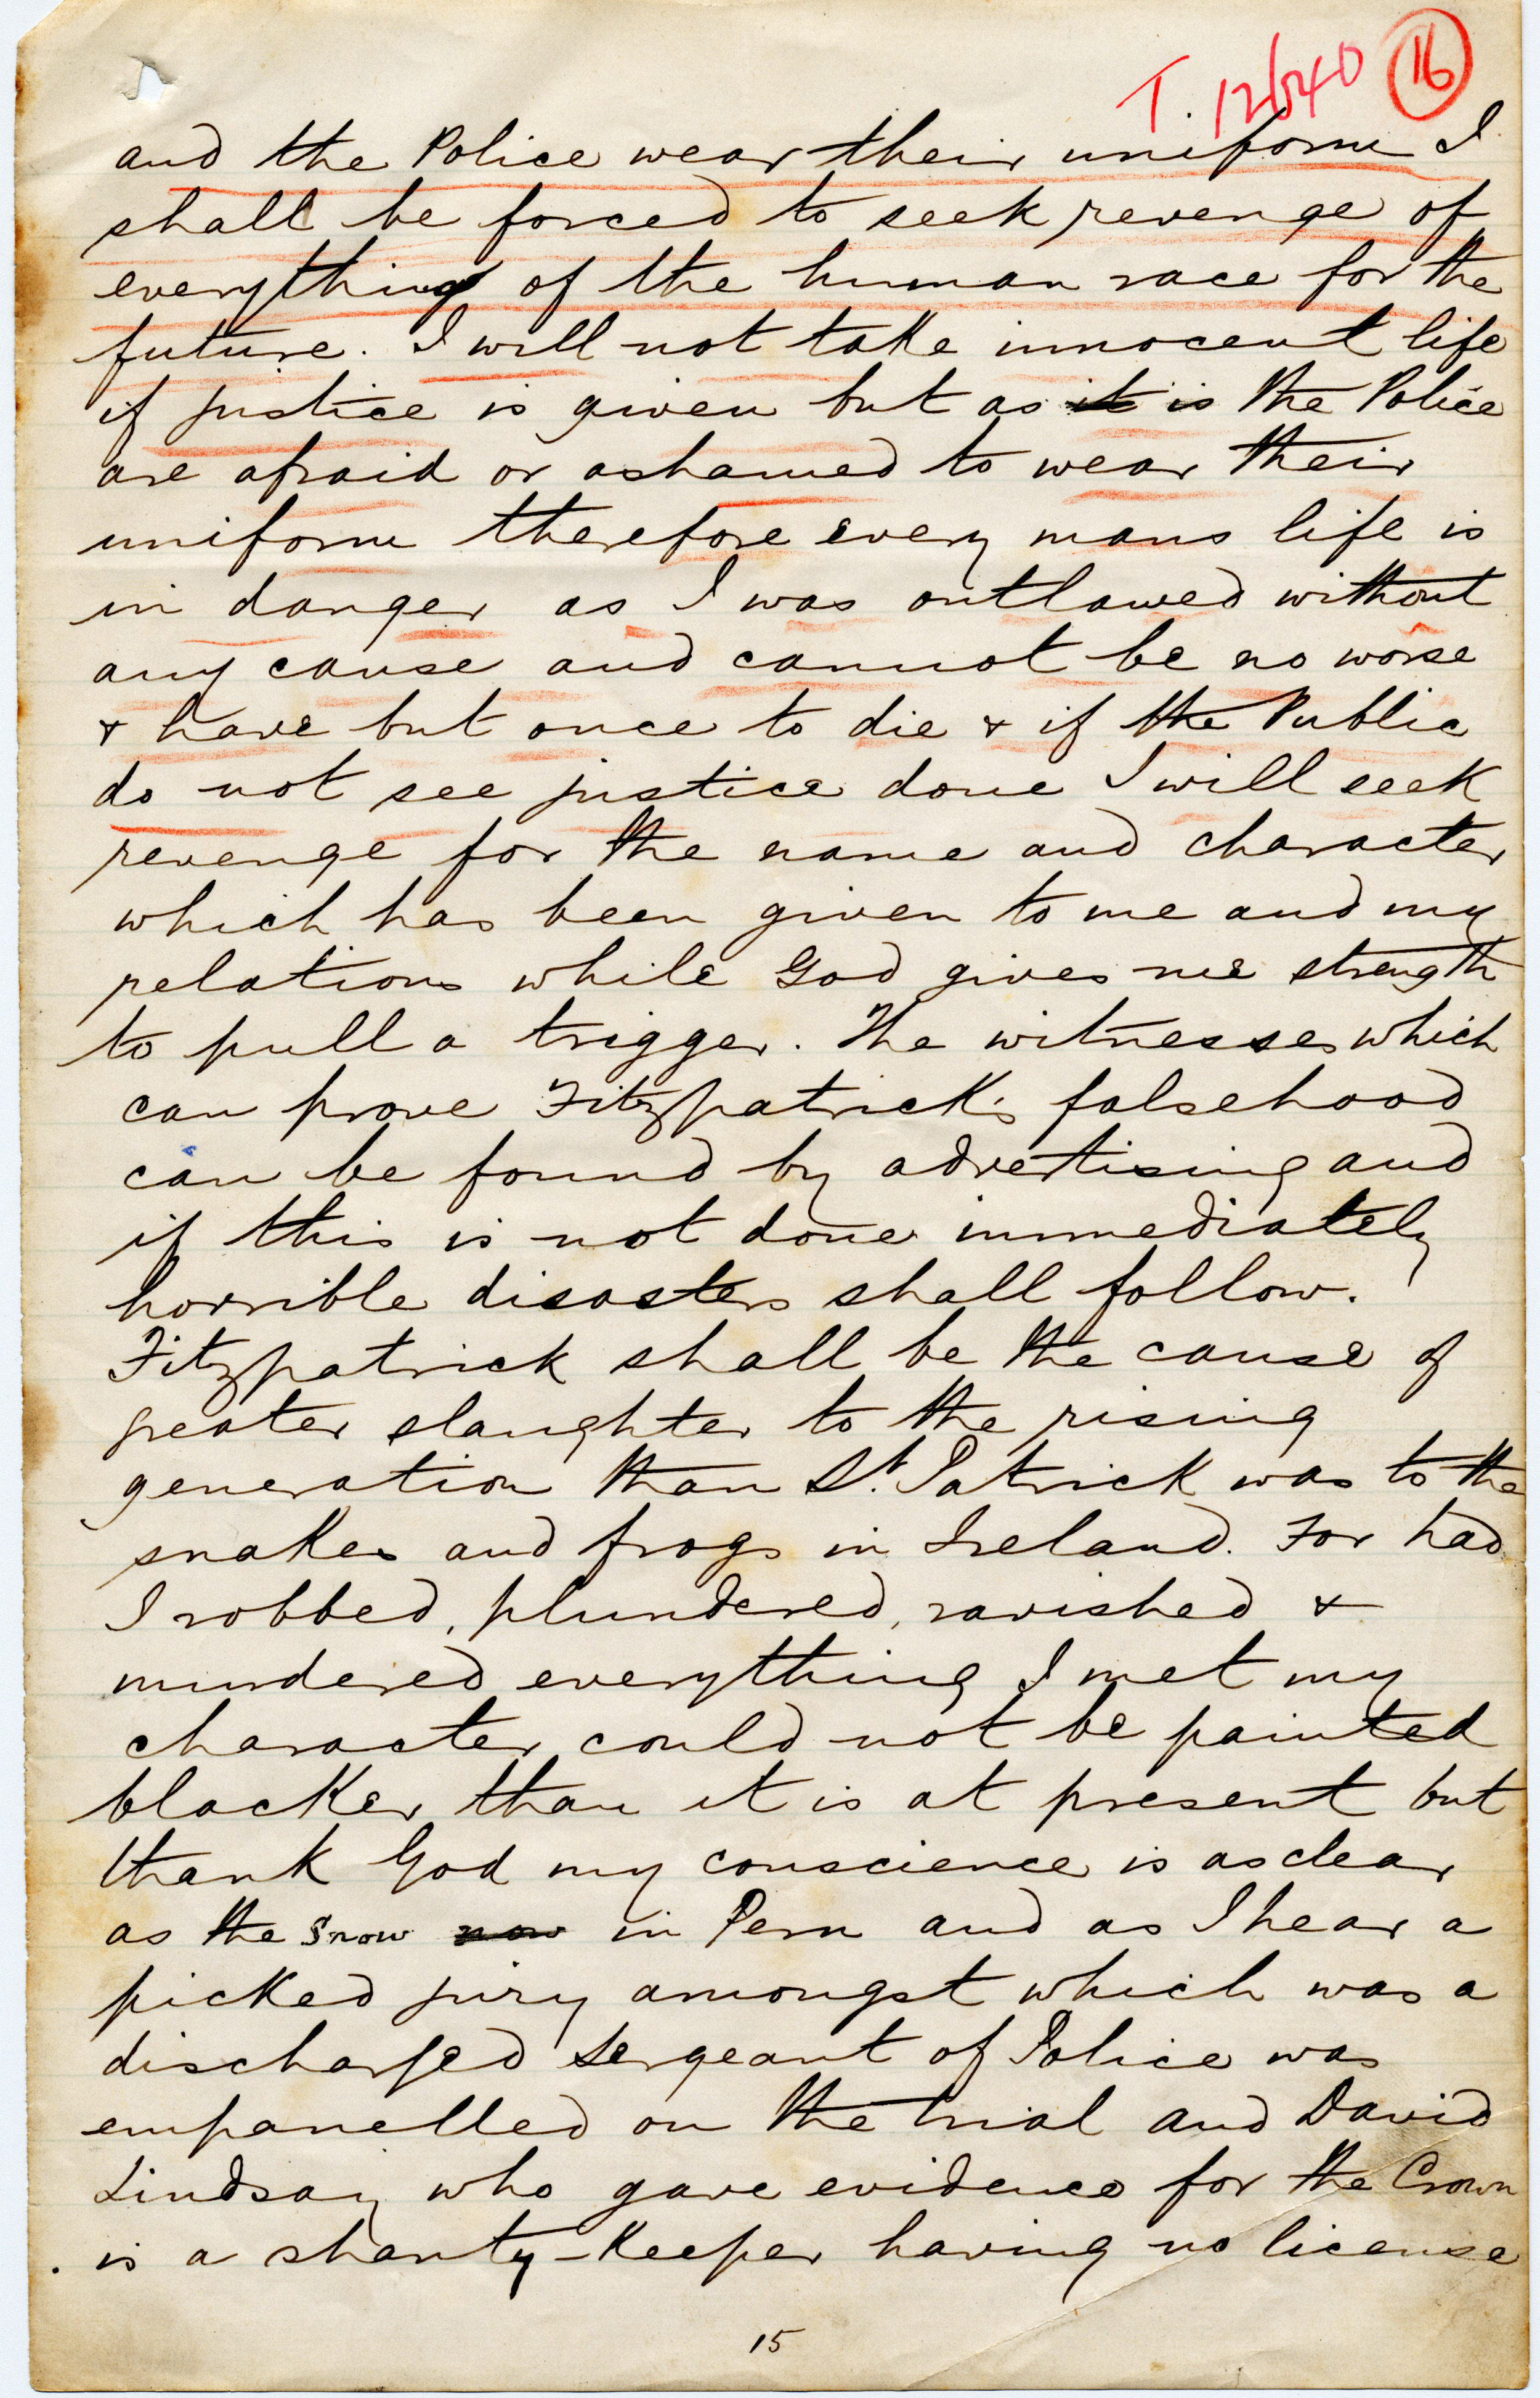 T. 12640 16
and the Police wear their uniform I
shall be forced to seek revenge of
everything of the human race for the
future. I will not take innocent life
if justice is given but as it is the Police
are afraid or ashamed to wear their
uniform therefore every mans life is
in danger as I was outlawed without
any cause and cannot be no worse
& have but once to die & if the Public
do not see justice done I will seek
revenge for the name and character
which has been given to me and my
relations while God gives me strength
to pull a trigger. The witnesses which
can prove Fitzpatrick's falsehood
can be found by advertising and
if this is not done immediately
horrible disasters shall follow.
Fitzpatrick shall be the cause of
greater slaughter to the rising
generation than St. Patrick was to the
snakes and frogs in Ireland. For had
I robbed, plundered, ravished &
murdered everything I met my
character could not be painted
blacker than it is at present but
thank God my conscience is as clear
as the snow now in Peru and as I hear a
picked jury amongst which was a
discharged Sergeant of Police was
empanelled on the trial and David
Lindsay who gave evidence for the Crown
is a shanty-Keeper having no license
15